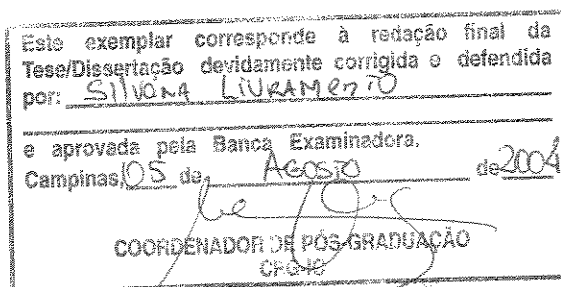 Este exemplar corresponde à redação final da
Tese/Dissertação devidamente corrigida e defendida
por: Silvana Livramento
e aprovada pela Banca Examinadora.
Campinas, 05 de AGOSTO de 2004
COORDENADOR DE PÓS-GRADUAÇÃO
CPG-IC